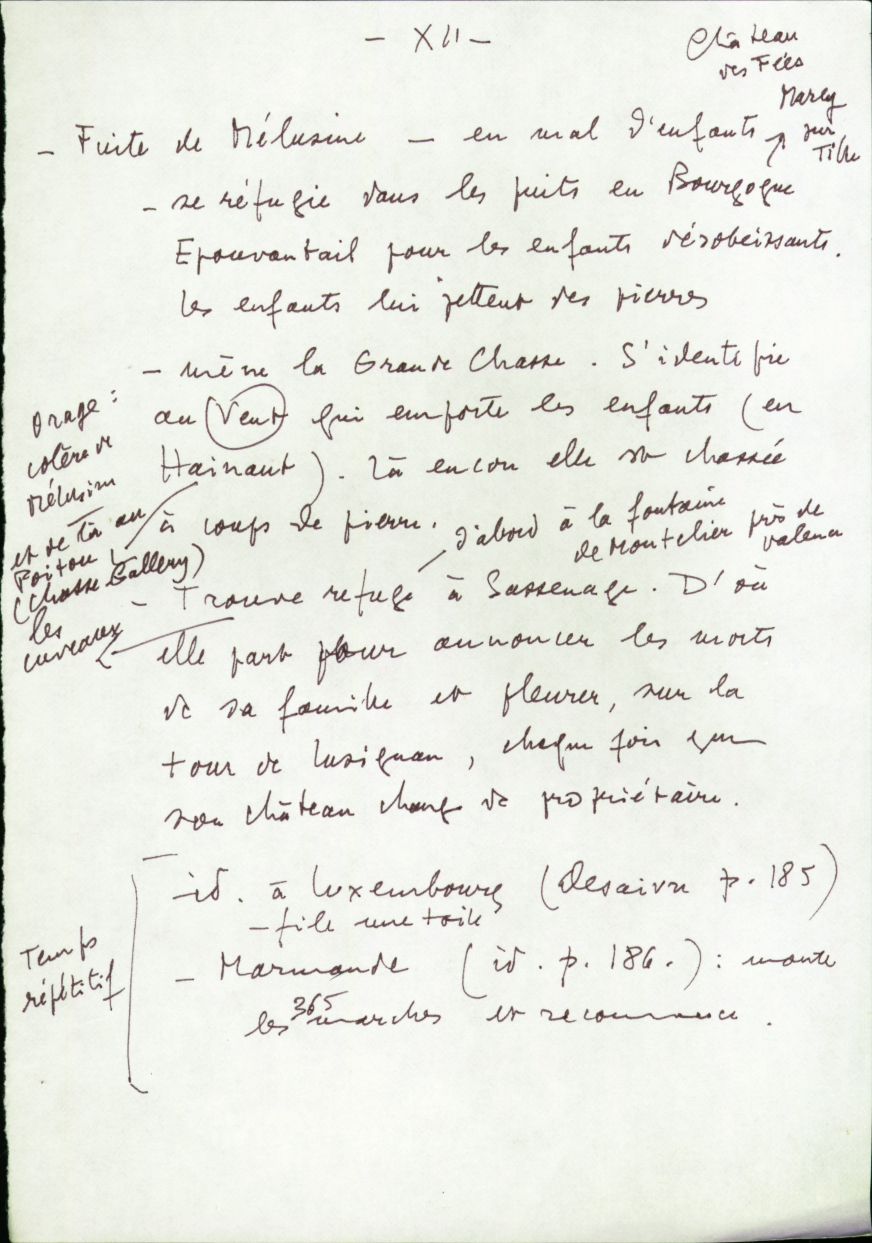 - XII -
Château
des Fées
Marey
sur
Tille
- Fuite de Mélusine - en mal d'enfants
- se réfugie dans les puits en Bourgogne
Epouvantail pour les enfants désobeissants.
les enfants lui jettent des pierres
- mène la Grande Chasse. S'identifie
au Vent qui emporte les enfants (en
Hainaut). Là encore elle est chassée
à coups de pierre.
Orage :
colère de
Mélusine
et de là au
Poitou
(Chasse Gallery)
d'abord à la fontaine près de
de Montelier Valence
- Trouve refuge à Sassenage. D'où
les
cuveaux
elle part pour annoncer les morts
de sa famille et pleurer, sur la
tour de Lusignan, chaque fois que
son château change de propriétaire.
- id. à Luxembourg (Desaivre p. 185)
- file une toile
Temps
répétitif
- Marmande (id. p. 186.) : monte
les 365 marches et recommence.